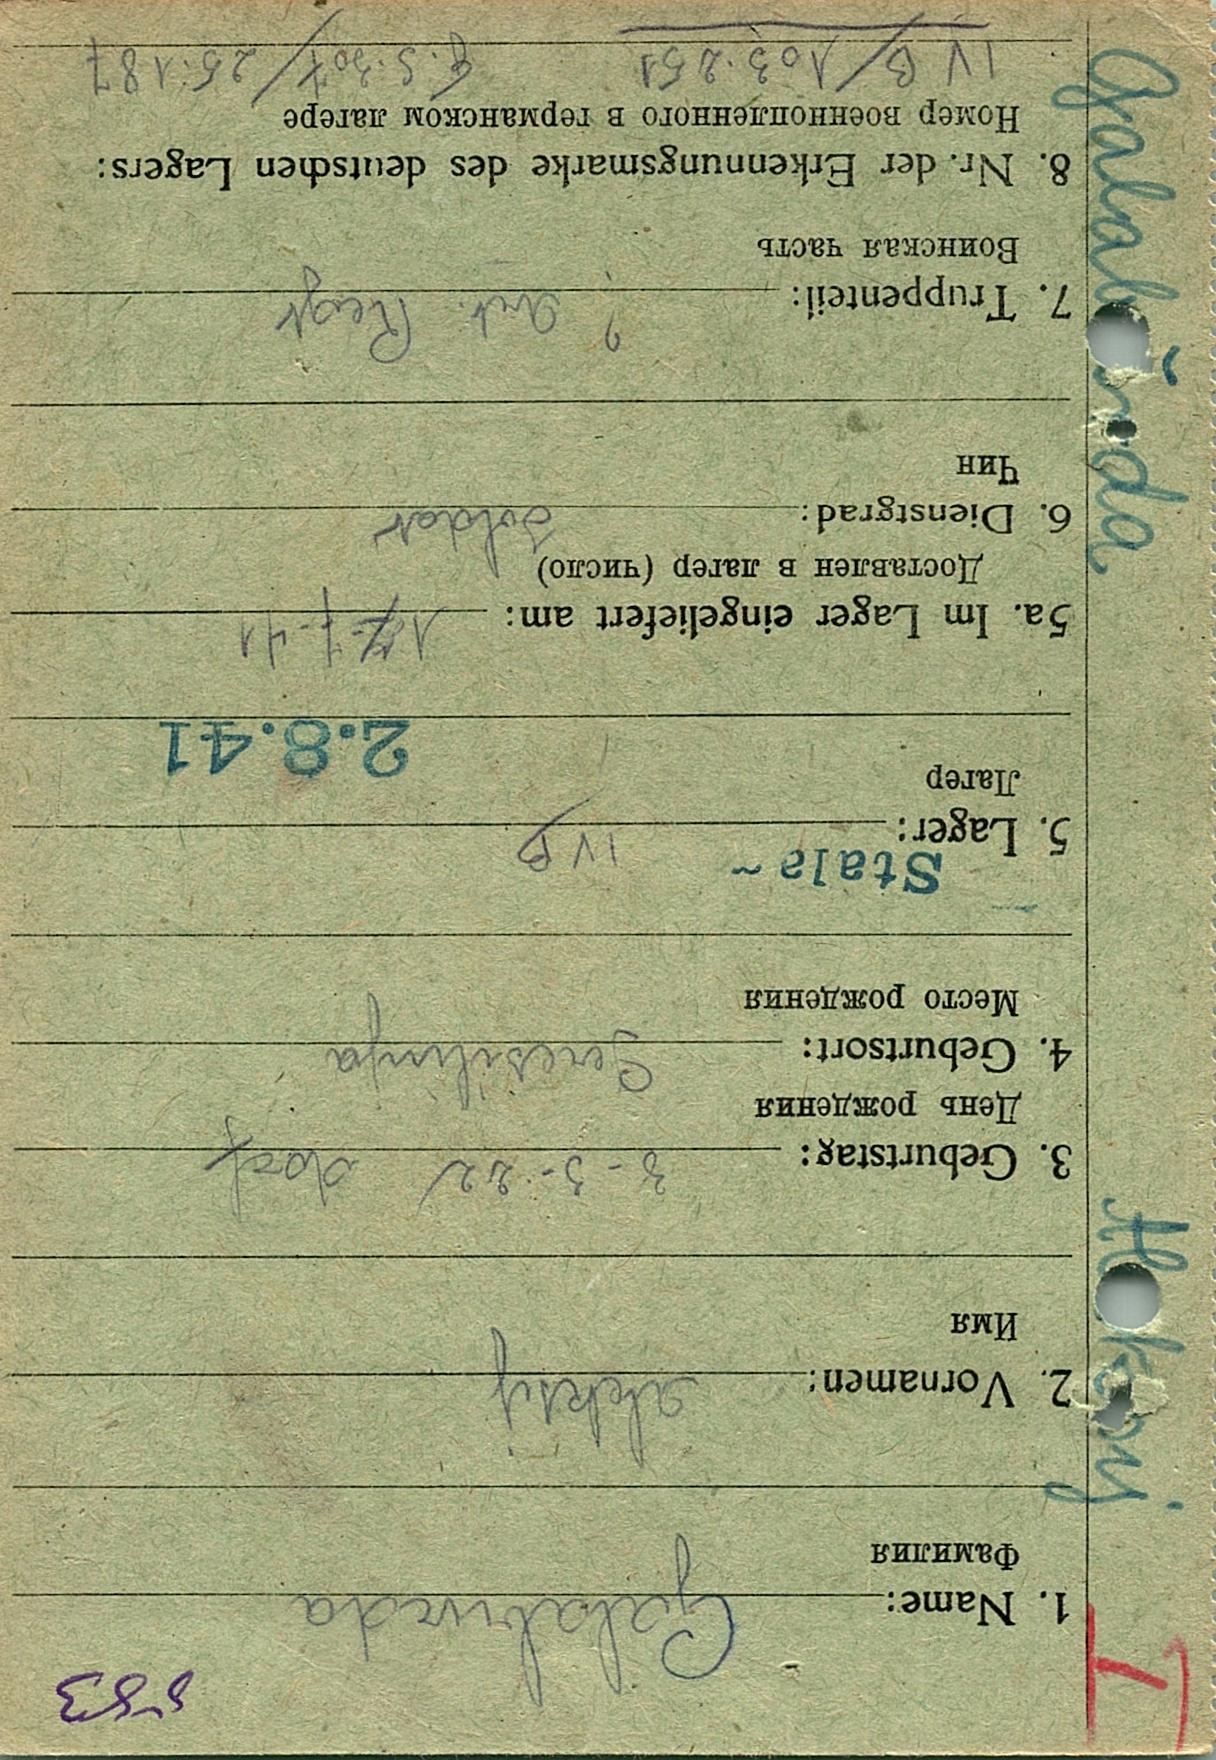 1. Name: Galaburda
Фамилия
2. Vornamen: Aleksij
Имя
3. Geburtstag: 22
День рождения
4. Geburtsort:
Место рождения
Stala
5. Lager: IV B
Лагер
2.8.41
5a. Im Lager eingeliefert am: 17-7-41
Доставлен в лагер (число)
6. Dienstgrad: Soldat
Чин
7. Truppenteil: ? Art. Regt
Воинская часть
8. Nr. der Erkennungsmarke des deutschen Lagers:
Номер военнопленного в германском лагере
IV B/103.251 307/25.187
Aleksij
Galaburda